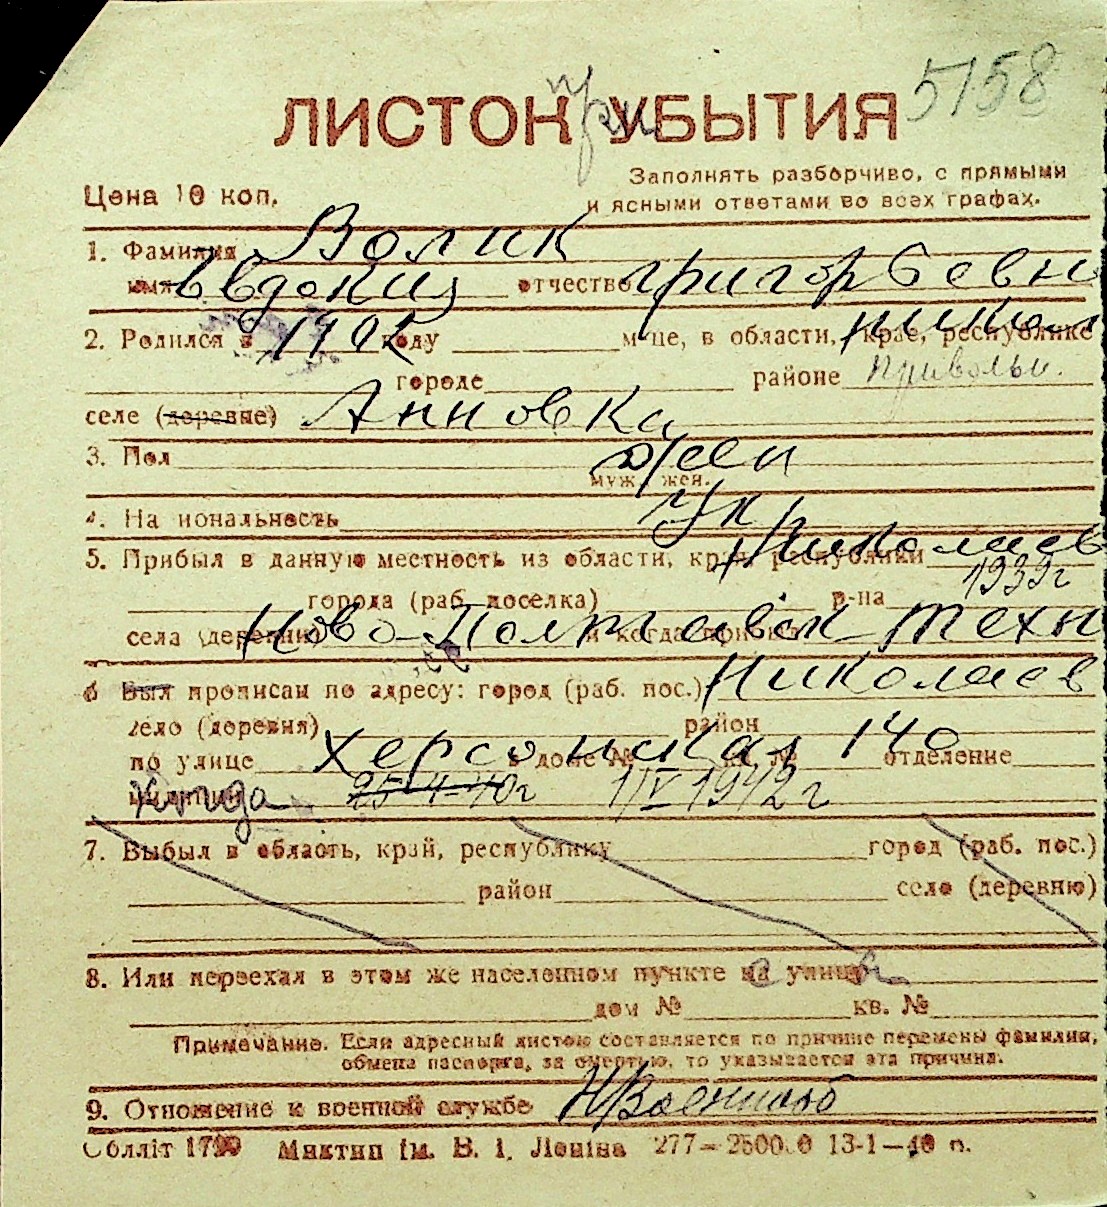 5158
ЛИСТОК при УБЫТИЯ
Заполнять разборчиво, с прямыми
Цена 10 коп.
и ясными ответами во всех графах.
1. Фамилия Волик
имя Евдокия отчество Григорьевн
2. Родился в 1902 году м-це, в области, крае, республике Никол
городе районе Привольн.
селе (деревне) Анновка
3. Пол жен
муж. жен.
4. На иональность укр
5. Прибыл в данную местность из области, края, республики Николаев
1939г
города (раб. поселка) р-на
села (деревни) Ново-Полтавск техн и когда прибыл
6 Был прописан по адресу: город (раб. пос.) Николаев
село (деревня) район
по улице Херсонская 140 в доме № кв. № отделение
когда 25-4-40г 1/IV 1942г
7. Выбыл в область, край, республику город (раб. пос.)
район село (деревню)
8. Или переехал в этом же населенном пункте на улицу с ы
дом № кв. №
Примечание. Если адресный листок составляется по причине перемены фамилии,
обмена паспорта, за смертью, то указывается эта причина.
9. Отношение к военной службе Н/Военнооб
Облліт 1799 Миктип ім. В. І. Леніна 277—2500.0 13-1—40 п.